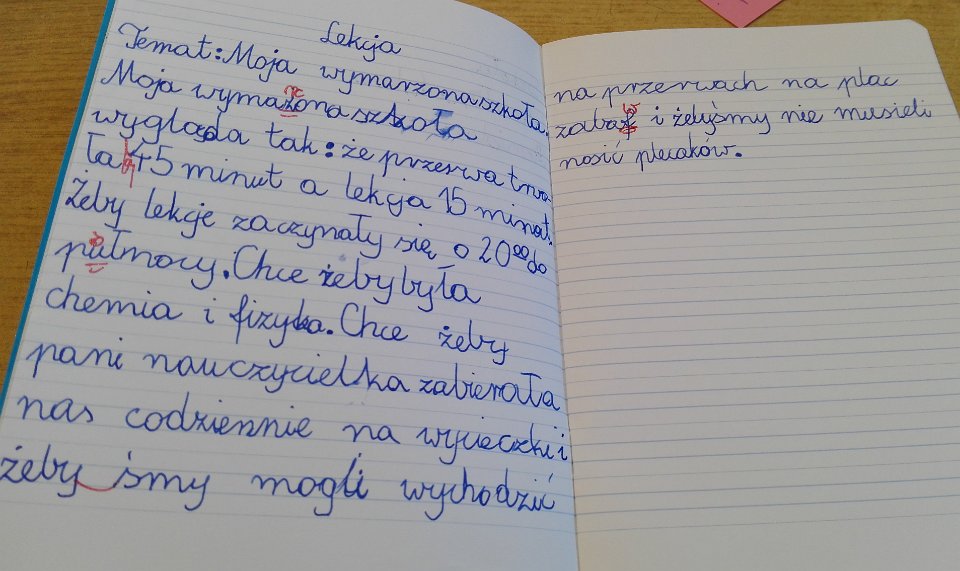 Lekcja
Temat: Moja wymarzona szkoła.
Moja wymażona szkoła
wygląda tak: że przerwa trwa
ła 45 minut a lekcja 15 minut.
Żeby lekcje zaczynały się o 20⁰⁰ do
pułnocy. Chce żeby była
chemia i fizyka. Chce żeby
pani nauczycielka zabierała
nas codziennie na wycieczki i
żeby śmy mogli wychodzić
na przerwach na plac
zabaw i żebyśmy nie musieli
nosić plecaków.